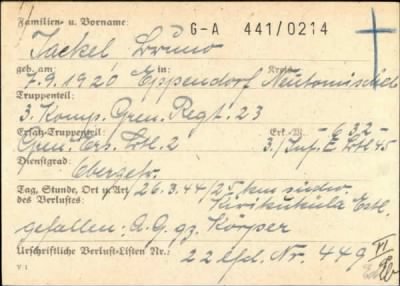 Familien- u. Vorname: G-A 441/0214
Jaekel, Bruno
geb. am in: Kreis
7.9.1920 Eppendorf Neutomischel
Truppenteil:
3. Komp. Gren. Regt. 23
Ersatz-Truppenteil: Erk.-M. -632-
Gren. Ers. Btl. 2 3./Inf. E. Btl 45
Dienstgrad:
Obergefr.
Tag, Stunde, Ort u. Art 26.3.44/25 km südw.
des Verlustes: Estl.
gefallen: A.G. gz. Körper
Urschriftliche Verlust-Listen Nr.: 22 lfd. Nr. 449 VI
V 1